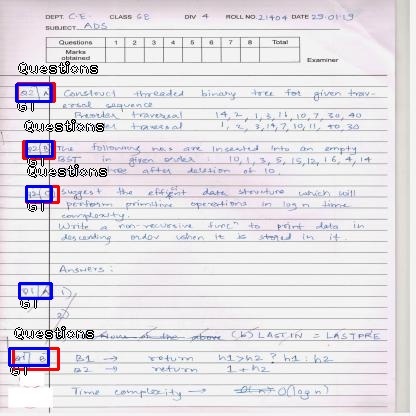 DEPT. C.E. CLASS GB DIV 4 ROLL NO. 21404 DATE 29.01.19
SUBJECT ADS
Questions 1 2 3 4 5 6 7 8 Total
Marks obtained
Examiner
Questions
Q2 A Construct threaded binary tree for given trav-
GT ersal sequence
Preorder traversal 14, 2, 1, 3, 11, 10, 7, 30, 40
Questions traversal 1, 2, 3, 14, 7, 10, 11, 40, 30
Q2 B The following nos are inserted into an empty
GT BST in given order: 10, 1, 3, 5, 15, 12, 16, 4, 14
Questions tree after deletion of 10.
Q2 C Suggest the efficient data structure which will
GT perform primitive operations in log n time
complexity.
Write a non-recursive funcn to print data in
descending order when it is stored in it.
Answers:
Q1 A 1)
GT
2)
Questions None of the above (b) LASTIN = LASTPRE
Q1 B B1 → return h1>h2? h1: h2
GT B2 → return 1+h2
Time complexity → O(log n)